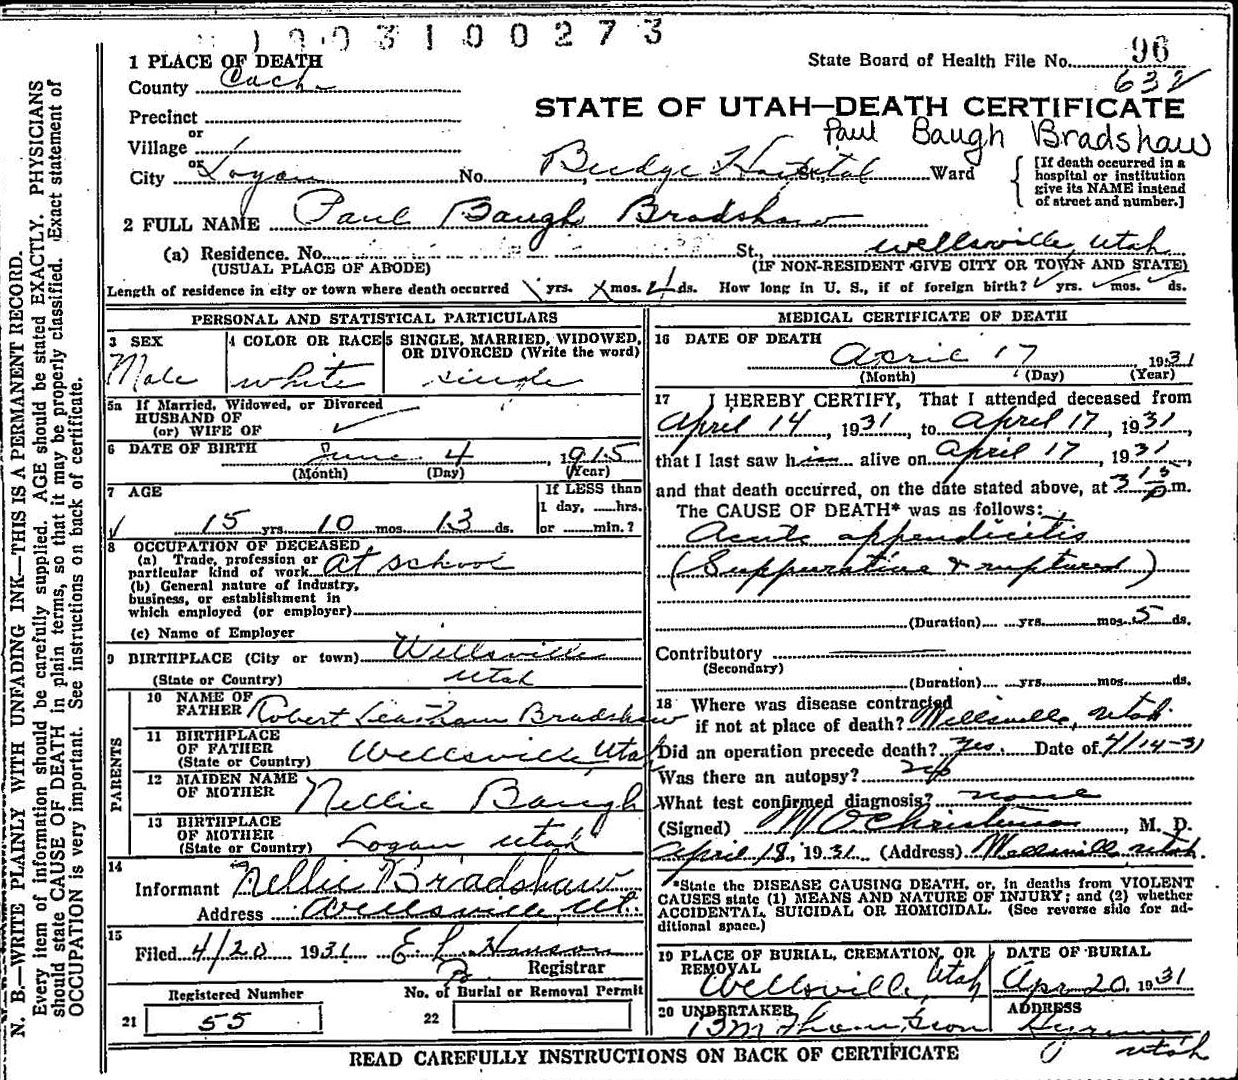 1 0 0 3 1 0 0 2 7 3
1 PLACE OF DEATH
State Board of Health File No. 96
632
County Cache
STATE OF UTAH—DEATH CERTIFICATE
Precinct
or
Village
Paul Baugh Bradshaw
or
City Logan No. Budge Hospital St., Ward
[If death occurred in a
hospital or institution
give its NAME instead
of street and number.]
2 FULL NAME Paul Baugh Bradshaw
(a) Residence. No. St., Wellsville, Utah
(USUAL PLACE OF ABODE) (IF NON-RESIDENT GIVE CITY OR TOWN AND STATE)
Length of residence in city or town where death occurred yrs. mos. 4 ds. How long in U. S., if of foreign birth? yrs. mos. ds.
PERSONAL AND STATISTICAL PARTICULARS
3 SEX
Male
4 COLOR OR RACE
white
5 SINGLE, MARRIED, WIDOWED,
OR DIVORCED (Write the word)
single
5a If Married, Widowed, or Divorced
HUSBAND OF
(or) WIFE OF
6 DATE OF BIRTH
June 4, 1915
(Month) (Day) (Year)
7 AGE
15 yrs. 10 mos. 13 ds.
If LESS than
1 day, hrs.
or min.?
8 OCCUPATION OF DECEASED
(a) Trade, profession or
particular kind of work At school
(b) General nature of industry,
business, or establishment in
which employed (or employer)
(c) Name of Employer
9 BIRTHPLACE (City or town) Wellsville
(State or Country) Utah
PARENTS
10 NAME OF
FATHER Robert Leatham Bradshaw
11 BIRTHPLACE
OF FATHER
(State or Country) Wellsville, Utah
12 MAIDEN NAME
OF MOTHER Nellie Baugh
13 BIRTHPLACE
OF MOTHER
(State or Country) Logan Utah
14
Informant Nellie Bradshaw
Address Wellsville, Ut.
15
Filed 4/20 1931 E L Hanson
Registrar
Registered Number
21 55
No. of Burial or Removal Permit
22
MEDICAL CERTIFICATE OF DEATH
16 DATE OF DEATH
April 17, 1931
(Month) (Day) (Year)
17 I HEREBY CERTIFY, That I attended deceased from
April 14, 1931, to April 17, 1931,
that I last saw him alive on April 17, 1931,
and that death occurred, on the date stated above, at 3 15 p.m.
The CAUSE OF DEATH* was as follows:
Acute appendicitis
(Suppurative & ruptured)
(Duration) yrs. mos. 5 ds.
Contributory
(Secondary)
(Duration) yrs. mos. ds.
18 Where was disease contracted
if not at place of death? Wellsville, Utah
Did an operation precede death? Yes. Date of 4/14-31
Was there an autopsy? no
What test confirmed diagnosis? none
(Signed) M O Christensen, M. D.
April 18, 1931 (Address) Wellsville, Utah.
*State the DISEASE CAUSING DEATH, or, in deaths from VIOLENT
CAUSES state (1) MEANS AND NATURE OF INJURY; and (2) whether
ACCIDENTAL, SUICIDAL OR HOMICIDAL. (See reverse side for ad-
ditional space.)
19 PLACE OF BURIAL, CREMATION, OR
REMOVAL
Wellsville, Utah
DATE OF BURIAL
Apr 20, 1931
20 UNDERTAKER
Thompson
ADDRESS
Hyrum
Utah
READ CAREFULLY INSTRUCTIONS ON BACK OF CERTIFICATE
N. B.—WRITE PLAINLY WITH UNFADING INK—THIS IS A PERMANENT RECORD.
Every item of information should be carefully supplied. AGE should be stated EXACTLY. PHYSICIANS
should state CAUSE OF DEATH in plain terms, so that it may be properly classified. Exact statement of
OCCUPATION is very important. See instructions on back of certificate.